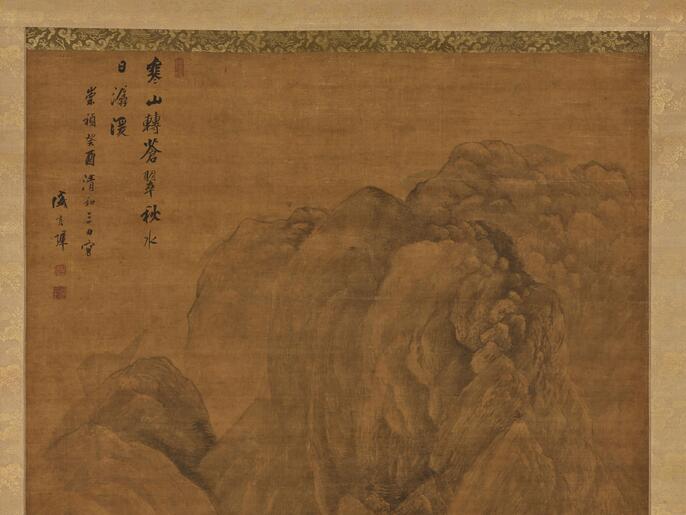 寒山轉蒼翠秋水
日潺湲
崇禎癸酉清和三日寫
盛茂燁